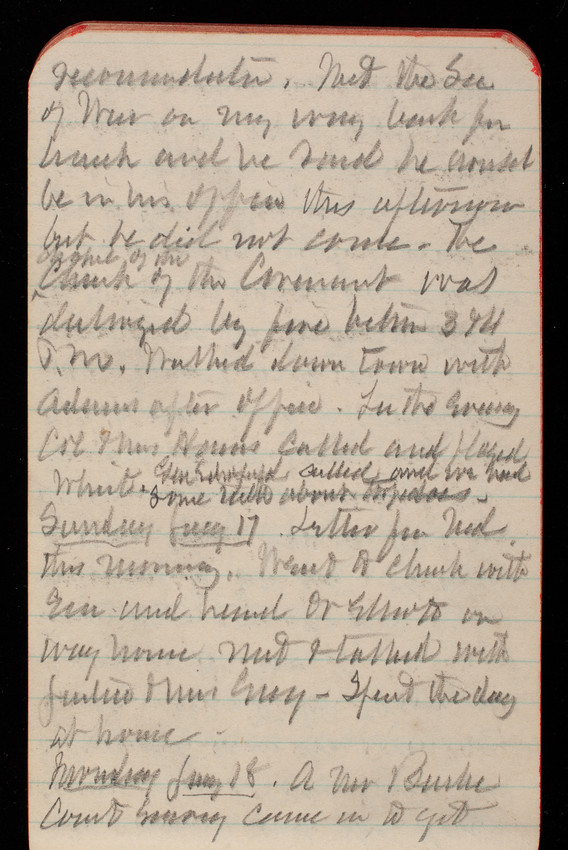 recommendation. Met the Sec
of War on my way back for
lunch and he said he would
be in his office this afternoon
but he did not come. The
chapel of the
Church of the Covenant was
destroyed by fire between 3 & 4
P.M. Walked down town with
Adams after office. In the Evening
Col & Mrs called and played
Whist. Gen called and we had
some talk about torpedoes.
Sunday Jany 17. Letter from Ned
this morning. Went to church with
Gen and heard Dr Elliott on
way home met & talked with
Justice & Mrs Gray - Spent the day
at home -
Monday Jany 18. A Mr Burke
came in to get